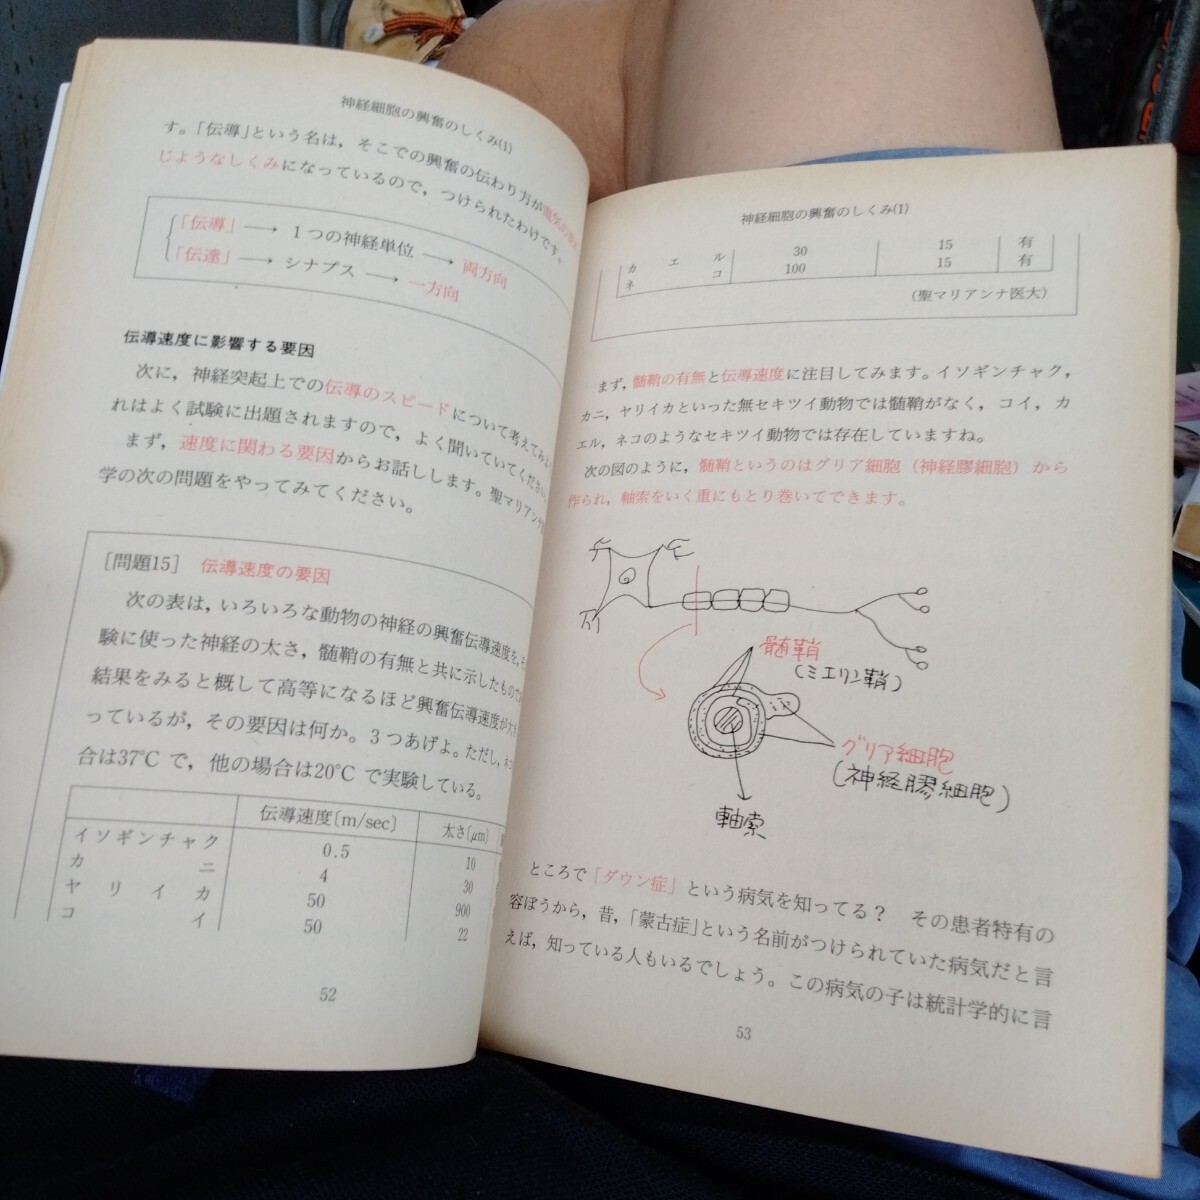 神経細胞の興奮のしくみ(1)
す。「伝導」という名は，そこでの興奮の伝わり方が
じようなしくみになっているので，つけられたわけです。
「伝導」→ 1つの神経単位 → 両方向
「伝達」→ シナプス → 一方向
伝導速度に影響する要因
次に，神経突起上での伝導のスピードについて考えてみま
れはよく試験に出題されますので，よく聞いていてください。
まず，速度に関わる要因からお話しします。聖マリアンナ
学の次の問題をやってみてください。
[問題15] 伝導速度の要因
次の表は，いろいろな動物の神経の興奮伝導速度を，
験に使った神経の太さ，髄鞘の有無と共に示したもので
結果をみると概して高等になるほど興奮伝導速度が大
っているが，その要因は何か。3つあげよ。ただし，ネコ
合は37℃で，他の場合は20℃で実験している。
伝導速度〔m/sec〕 太さ〔μm〕
イソギンチャク 0.5 10
カニ 4 30
ヤリイカ 50 900
コイ 50 22
52
神経細胞の興奮のしくみ(1)
カエル 30 15 有
ネコ 100 15 有
(聖マリアンナ医大)
まず，髄鞘の有無と伝導速度に注目してみます。イソギンチャク，
カニ，ヤリイカといった無セキツイ動物では髄鞘がなく，コイ，カ
エル，ネコのようなセキツイ動物では存在していますね。
次の図のように，髄鞘というのはグリア細胞（神経膠細胞）から
作られ，軸索をいく重にもとり巻いてできます。
髄鞘
(ミエリン鞘)
グリア細胞
(神経膠細胞)
軸索
ところで「ダウン症」という病気を知ってる？ その患者特有の
容ぼうから，昔，「蒙古症」という名前がつけられていた病気だと言
えば，知っている人もいるでしょう。この病気の子は統計学的に言
53